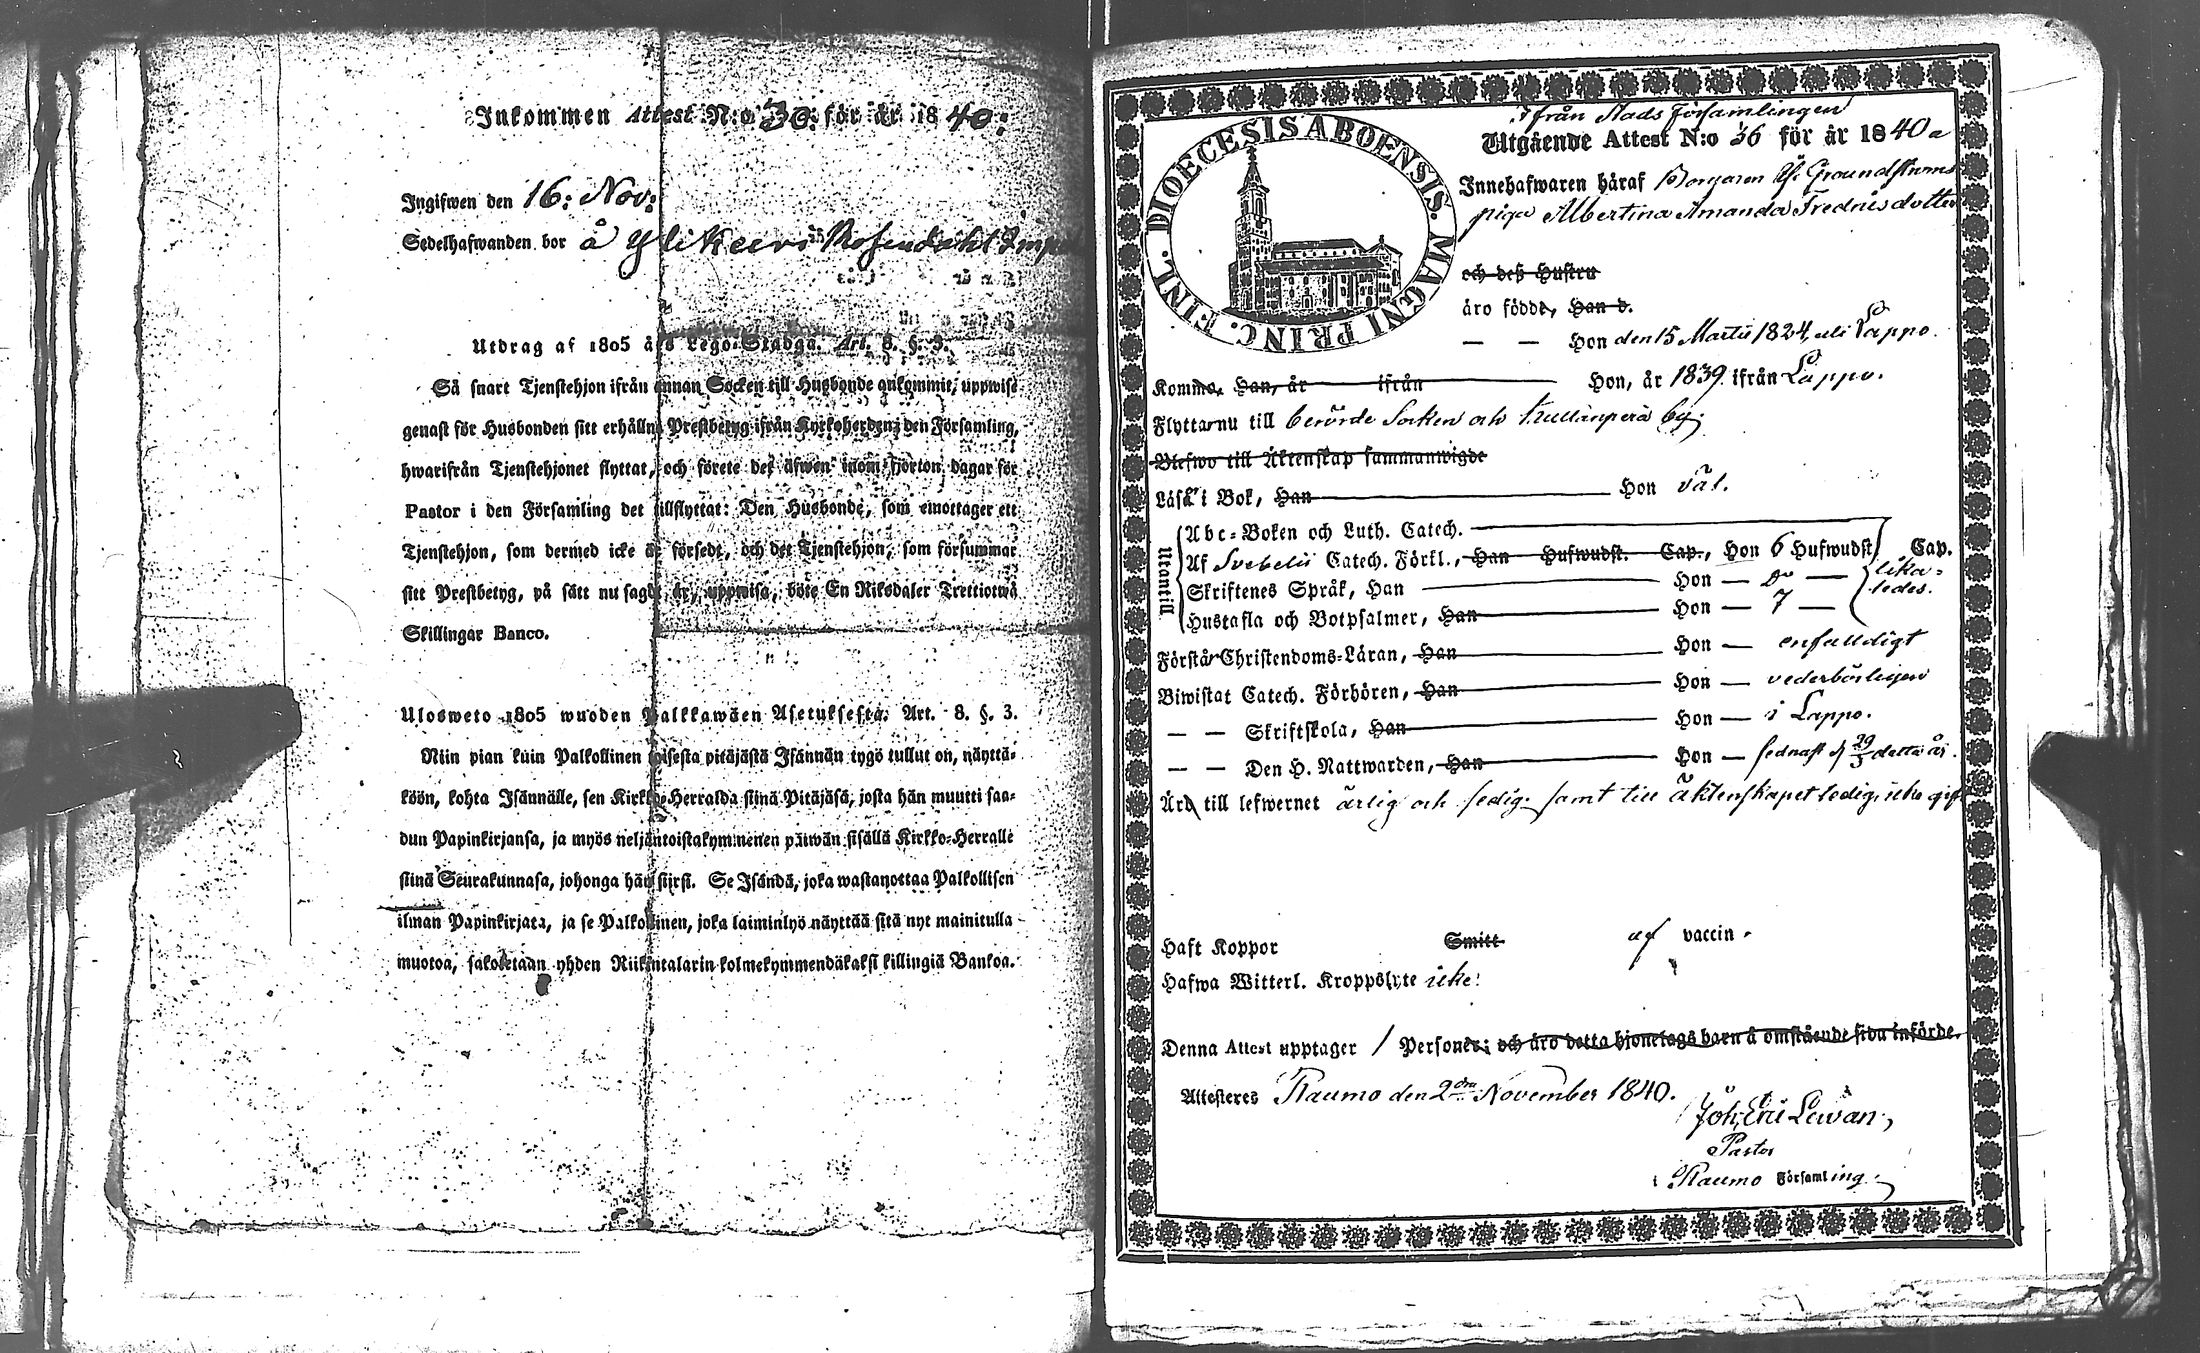 Inkommen Attest N:o 30: för år 1840:
Ingifwen den 16: Nov:
Sedelhafwanden bor å Ylikeeri
Utdrag af 1805 års Lego-Stadga. Art. 8. §. 3.
Så snart Tjenstehjon ifrån annan Socken till Husbonde ankommit, uppwise
genast för Husbonden sitt erhållna Prestbetyg ifrån Kyrkoherden i den Församling,
hwarifrån Tjenstehjonet flyttat, och förete det äfwen inom fjorton dagar för
Pastor i den Församling det tillflyttat: Den Husbonde, som emottager ett
Tjenstehjon, som dermed icke är försedt, och det Tjenstehjon, som försummar
sitt Prestbetyg, på sätt nu sagdt är, uppwisa, böte En Riksdaler Trettiotwå
Skillingar Banco.
Ulosweto 1805 wuoden Palkkawäen Asetuksesta. Art. 8. §. 3.
Niin pian kuin Palkollinen toisesta pitäjästä Isännän tygö tullut on, näyttä-
köön, kohta Isännälle, sen Kirkko-Herralda siinä Pitäjäsä, josta hän muutti saa-
dun Papinkirjansa, ja myös neljäntoistakymmenen päiwän sisällä Kirkko-Herralle
siinä Seurakunnasa, johonga hän siirsi. Se Isändä, joka wastanottaa Palkollisen
ilman Papinkirjata, ja se Palkollinen, joka laiminlyö näyttää sitä nyt mainitulla
muotoa, sakoitetaan yhden Riikintalarin kolmekymmendäkaksi killingiä Bankoa.
DIOECESIS ABOENSIS. MAGNI PRINC. FINL.
Ifrån Stads Församlingen
Utgående Attest N:o 36 för år 1840
Innehafwaren häraf Borgaren Groundstroms
piga Albertina Amanda Fredriksdotter
och deß Hustru
äro födde, Han d.
— — Hon den 15 Martii 1824, uti Lappo.
Komma, Han, år ifrån Hon, år 1839 ifrån Lappo.
Flytta nu till berörde Socken och Kullanperä by.
Blefwo till Äktenskap sammanwigde
Läsa i Bok, Han Hon väl.
Utantill
Abc-Boken och Luth. Catech.
Af Svebelii Catech. Förkl., Han Hufwudst. Cap., Hon 6 Hufwudst. Cap.
Skriftenes Språk, Han Hon — Do — lika-
Hustafla och Botpsalmer, Han Hon — 7 — ledes.
Förstår Christendoms-Läran, Han Hon — enfaldigt
Biwistat Catech. Förhören, Han Hon — vederbörligen
— — Skriftskola, Han Hon — i Lappo.
— — Den H. Nattwarden, Han Hon — sednast d 29/3 detta år.
Äro till lefwernet ärlig och sedig, samt till äktenskapet ledig, icke gift
Haft Koppor Smitt af vaccin.
Hafwa Witterl. Kroppslyte icke:
Denna Attest upptager 1 Personer; och äro detta hjonelags barn å omstående sida införde.
Attesteres Raumo den 2dra November 1840.
Joh, Eric Lewan,
Pastor
i Raumo Församling.